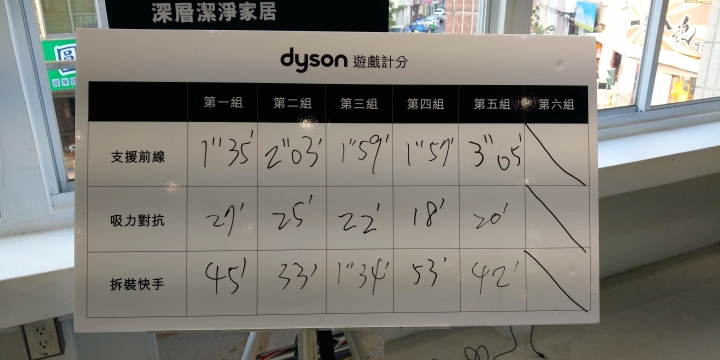 深層潔淨家居
dyson 遊戲計分
第一組 第二組 第三組 第四組 第五組 第六組
支援前線 1"35' 2"03' 1"59' 1"57' 3"05'
吸力對抗 27' 25' 22' 18' 20'
拆裝快手 45' 33' 1"34' 53' 42'